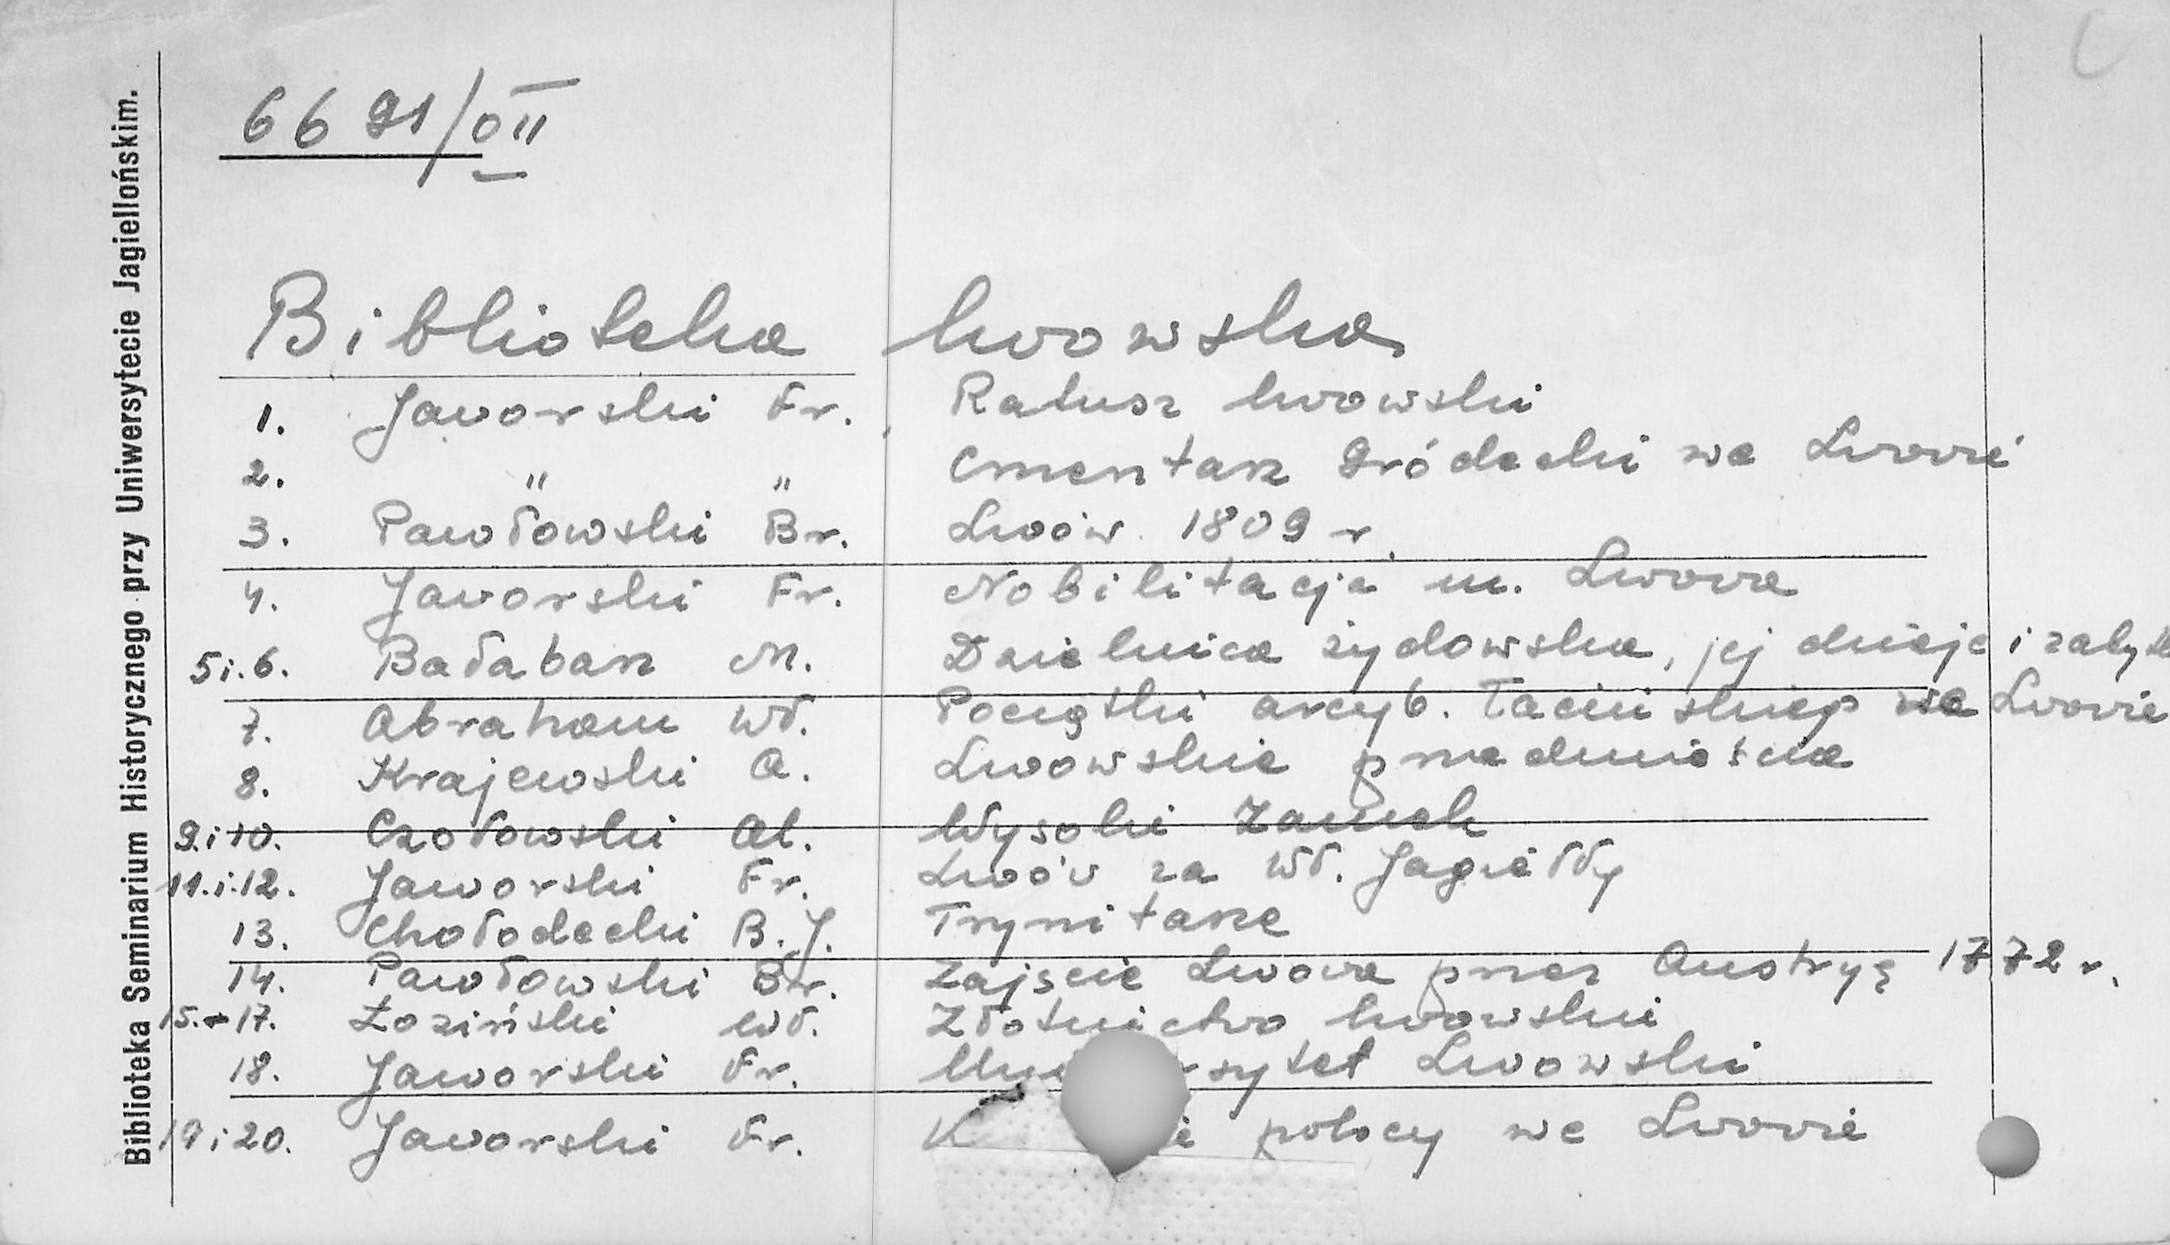 Biblioteka Seminarium Historycznego przy Uniwersytecie Jagiellońskim.
6691/VII
Biblioteka lwowska
1. Jaworski Fr. Ratusz lwowski
2. " " Cmentarz Gródecki we Lwowie
3. Pawłowski Br. Lwów 1809 r.
4. Jaworski Fr. Nobilitacja m. Lwowa
5 i. 6. Bałaban M. Dzielnica żydowska, jej dzieje i zabytk
7. Abraham Wł. Początki arcyb. łacińskiego we Lwowie
8. Krajewski A. Lwowskie przedmieścia
9. i 10. Czołowski Al. Wysoki Zamek
11. i. 12. Jaworski Fr. Lwów za Wł. Jagiełły
13. Chołodecki B. J. Trynitarze
14. Pawłowski Br. Zajście Lwowa przez Austryę 1772 r.
15. - 17. Łoziński Wł. Złotnictwo lwowskie
18. Jaworski Fr. Uniwersytet Lwowski
19 i 20. Jaworski Fr. polscy we Lwowie